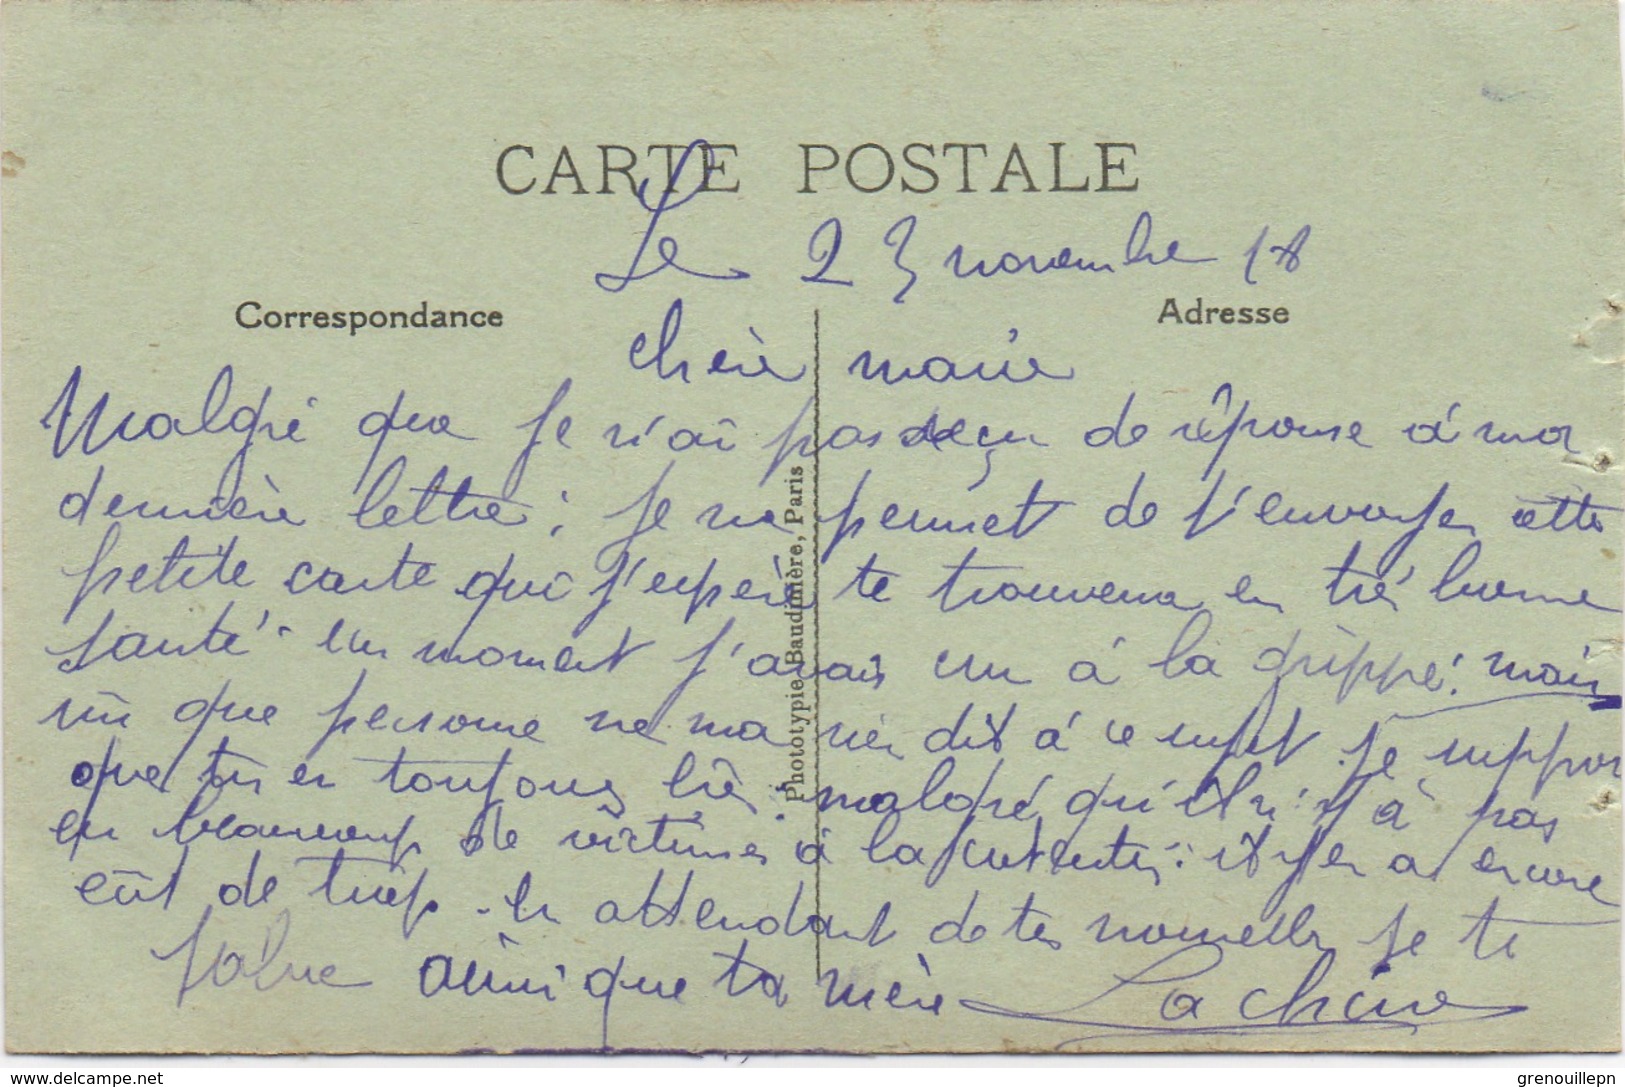 CARTE POSTALE
Le 23 novembre 18
Correspondance
Adresse
Chère marie
Malgré que je n'ai pas reçu de réponse à ma
dernière lettre; je me permet de t'envoyer cette
petite carte qui j'espère te trouvera en tré bonne
santé. un moment j'avais cru à la grippe! mais
vu que persone ne ma rien dit à ce sujet je suppose
que tu es toujours
malgré qu'il n'y à pas
eu beaucoup de victimes à la
il y en a encore
eût de trop. En attendant de tes nouvelles je te
salue ainsi que ta mère
Phototypie Baudinière, Paris
www.delcampe.net
grenouillepn